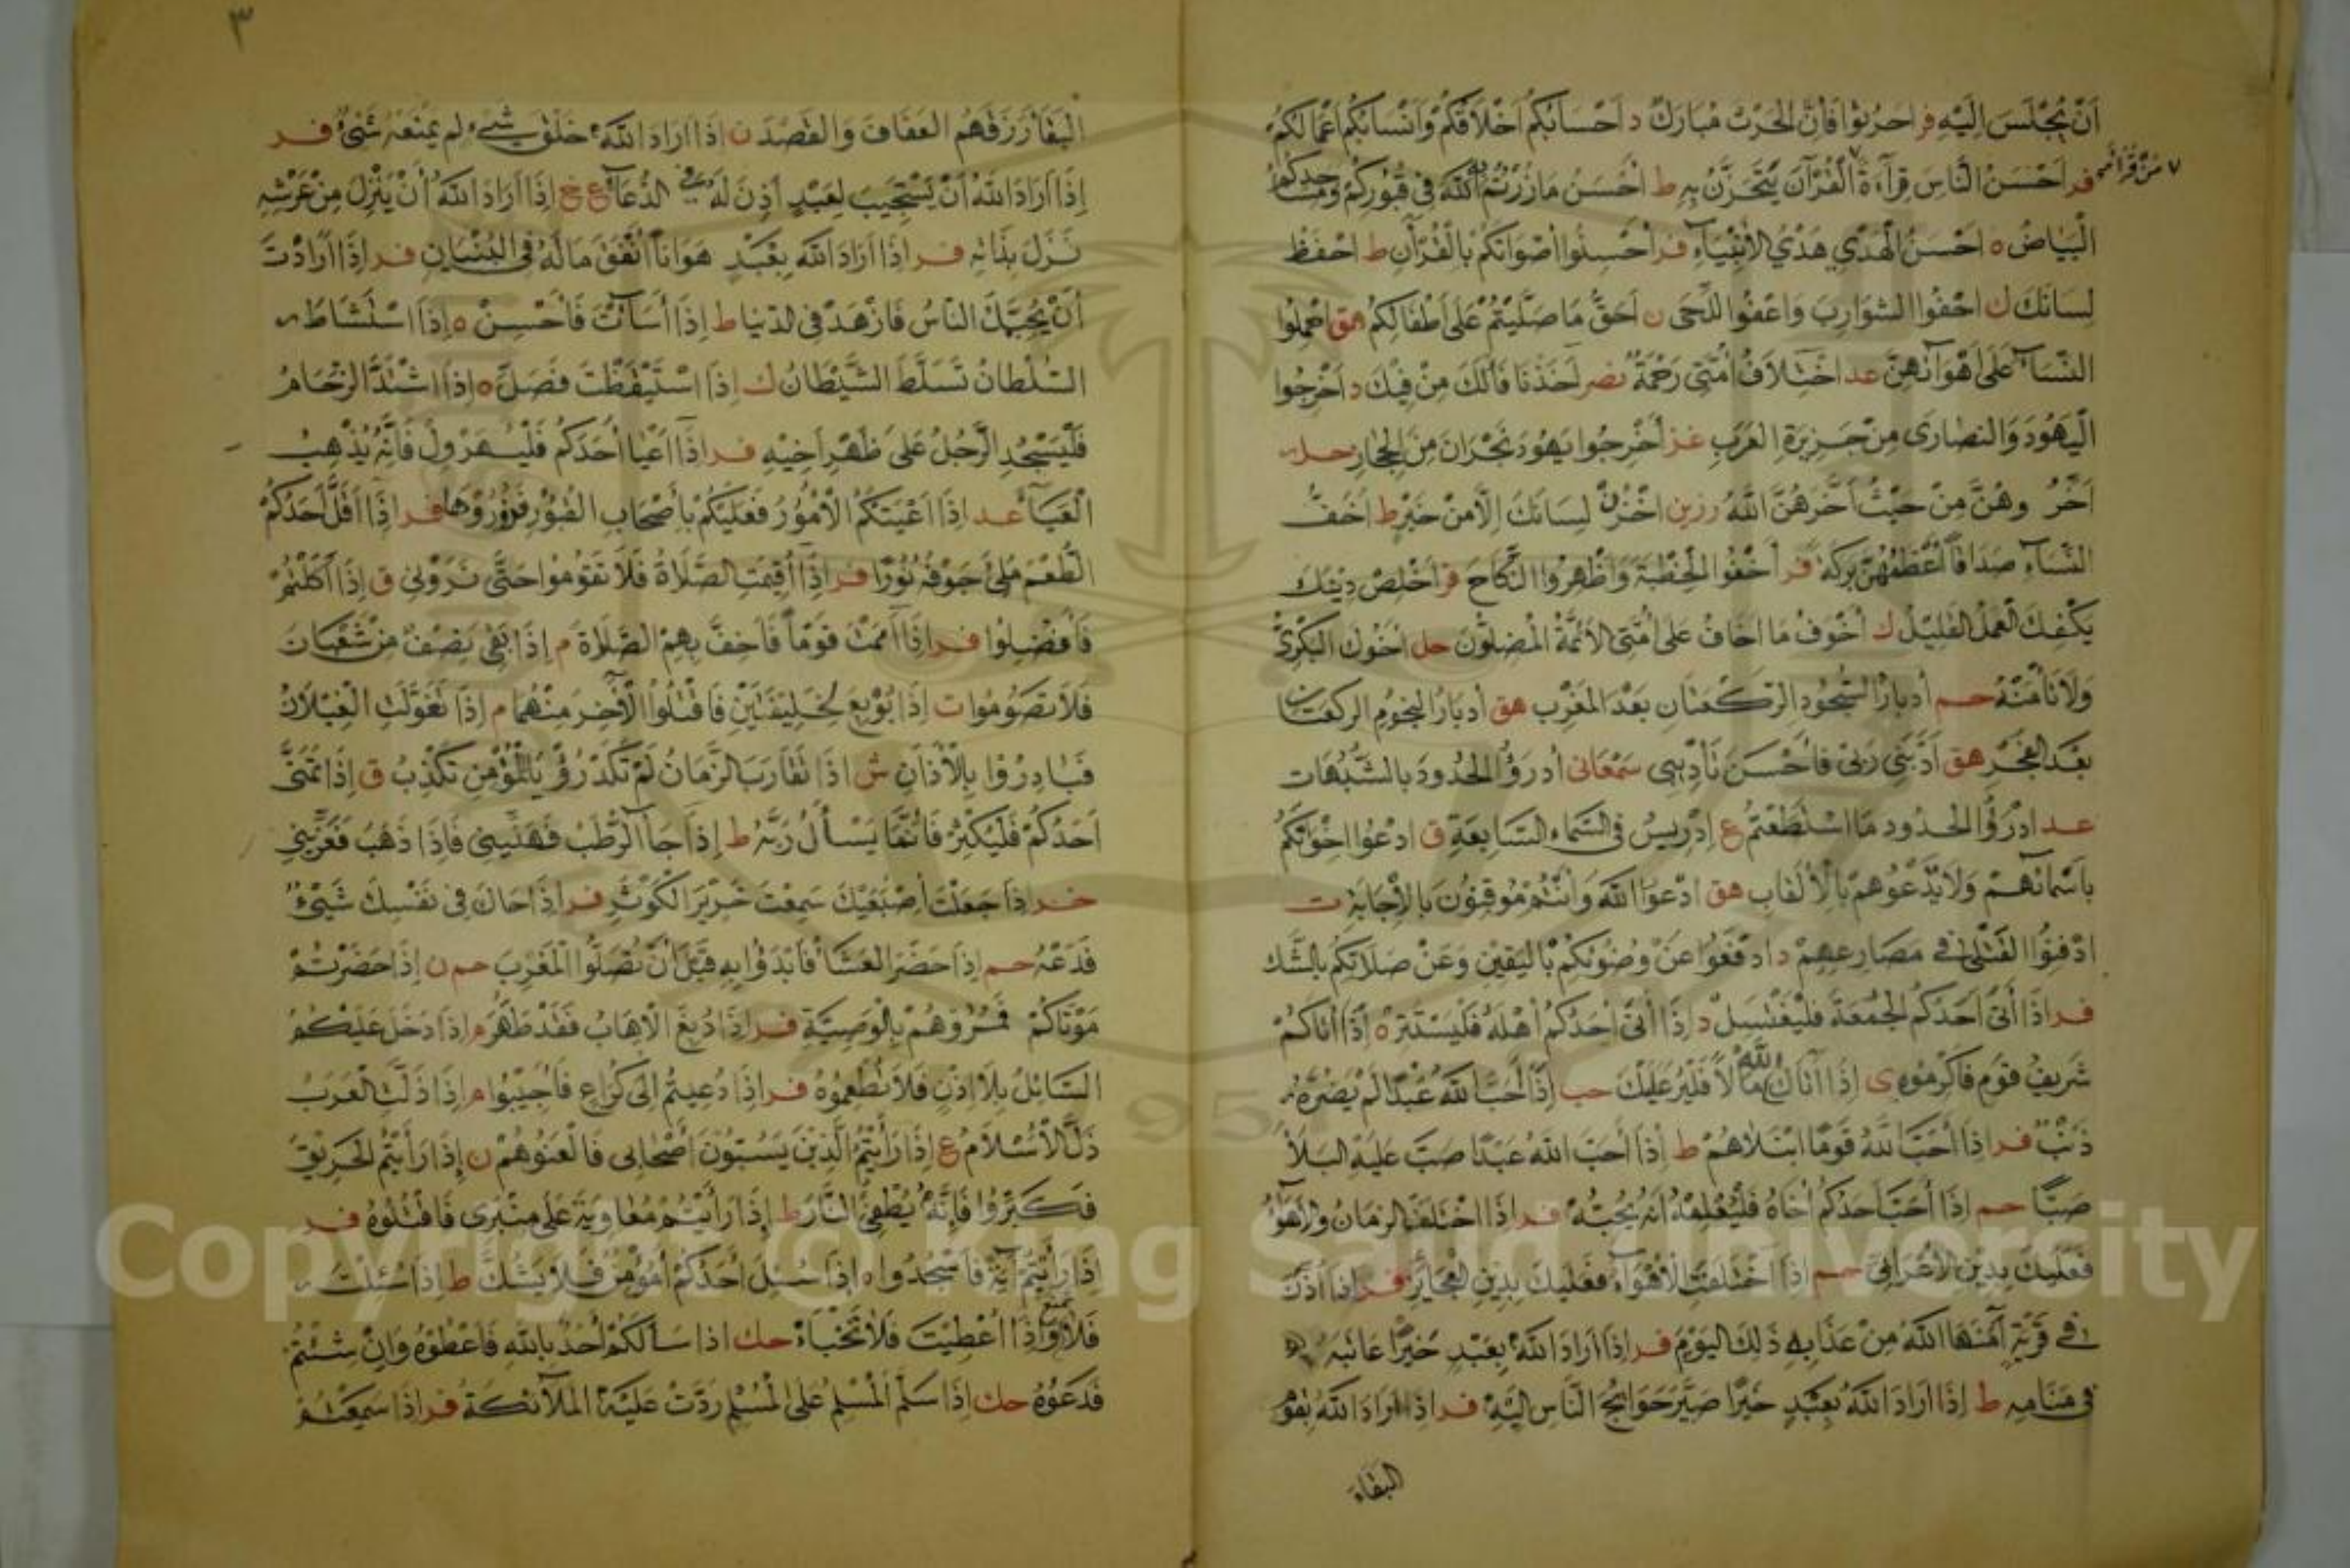 أَنْ يُجْلَسَ إِلَيْهِ فر احرثوا فَإِنَّ الْحَرْثَ مُبَارَكٌ د أَحْسَابُكُمْ أَخْلَاقُكُمْ وَأَنْسَابُكُمْ أَعْمَالُكُمْ
فر أَحْسَنُ النَّاسِ قِرَآءَةً الْقُرْآنَ يَتَحَزَّنُ بِهِ ط أَحْسَنُ مَا زُرْتُمُ اللَّهَ فِي قُبُورِكُمْ وَمَسَاجِدِكُمْ
مَنْ قَرَأَ
الْبَيَاضُ ه أَحْسَنُ الْهَدْيِ هَدْيُ الْأَنْبِيَآءِ فر أَحْسِنُوا أَصْوَاتَكُمْ بِالْقُرْآنِ ط احْفَظْ
لِسَانَكَ ك احْفُوا الشَّوَارِبَ وَاعْفُوا اللِّحَى ن أَحَقُّ مَا صَلَّيْتُمْ عَلَى أَطْفَالِكُمْ هق احْمِلُوا
النِّسَآءَ عَلَى أَهْوَآئِهِنَّ عد اخْتِلَافُ أُمَّتِي رَحْمَةٌ نصر أَخَذْنَا فَأْلَكَ مِنْ فِيكَ د أَخْرِجُوا
الْيَهُودَ وَالنَّصَارَى مِنْ جَزِيرَةِ الْعَرَبِ غز أَخْرِجُوا يَهُودَ نَجْرَانَ مِنَ الْحِجَازِ حل
أَخِّرُوهُنَّ مِنْ حَيْثُ أَخَّرَهُنَّ اللَّهُ رزين اخْزُنْ لِسَانَكَ إِلَّا مِنْ خَيْرٍ ط أَخَفُّ
النِّسَآءِ صَدَاقًا أَعْظَمُهُنَّ بَرَكَةً فر أَخْفُوا الْخِطْبَةَ وَأَظْهِرُوا النِّكَاحَ فر أَخْلِصْ دِينَكَ
يَكْفِكَ الْعَمَلُ الْقَلِيلُ ك أَخْوَفُ مَا أَخَافُ عَلَى أُمَّتِي الْأَئِمَّةُ الْمُضِلُّونَ حل أَخُوكَ الْبَكْرِيُّ
وَلَا تَأْمَنْهُ حم أَدْبَارُ السُّجُودِ الرَّكْعَتَانِ بَعْدَ الْمَغْرِبِ هق أَدْبَارُ النُّجُومِ الرَّكْعَتَانِ
بَعْدَ الْفَجْرِ هق أَدَّبَنِي رَبِّي فَأَحْسَنَ تَأْدِيبِي سَمْعَانى أَدْرَؤُا الْحُدُودَ بِالشُّبُهَاتِ
عد ادْرَؤُا الْحُدُودَ مَا اسْتَطَعْتُمْ ع إِدْرِيسُ فِي السَّمَاءِ السَّابِعَةِ ق ادْعُوا إِخْوَانَكُمْ
بِأَسْمَائِهِمْ وَلَا تَدْعُوهُمْ بِالْأَلْقَابِ هق ادْعُوا اللَّهَ وَأَنْتُمْ مُوقِنُونَ بِالْإِجَابَةِ ت
ادْفِنُوا الْقَتْلَى فِي مَصَارِعِهِمْ د ادْفَعُوا عَنْ وُضُوئِكُمْ بِالْيَقِينِ وَعَنْ صَلَاتِكُمْ بِالشَّكِّ
فر إِذَا أَتَى أَحَدُكُمُ الْجُمُعَةَ فَلْيَغْتَسِلْ د إِذَا أَتَى أَحَدُكُمْ أَهْلَهُ فَلْيَسْتَتِرْ ه إِذَا أَتَاكُمْ
شَرِيفُ قَوْمٍ فَأَكْرِمُوهُ ى إِذَا أَتَاكَ اللَّهُ مَالًا فَلْيُرَ عَلَيْكَ حب إِذَا أَحَبَّ اللَّهُ عَبْدًا لَمْ يَضُرَّهُ
ذَنْبٌ فر إِذَا أَحَبَّ اللَّهُ قَوْمًا ابْتَلَاهُمْ ط إِذَا أَحَبَّ اللَّهُ عَبْدًا صَبَّ عَلَيْهِ الْبَلَاءَ
صَبًّا حم إِذَا أَحَبَّ أَحَدُكُمْ أَخَاهُ فَلْيُعْلِمْهُ أَنَّهُ يُحِبُّهُ فر إِذَا اخْتَلَفَ الزَّمَانُ وَالْأَهْوَآءُ
فَعَلَيْكَ بِدِينِ الْأَعْرَابِيِّ حم إِذَا اخْتَلَفَتِ الْأَهْوَآءُ فَعَلَيْكَ بِدِينِ الْعَجَائِزِ فر إِذَا أُذِّنَ
فِي قَرْيَةٍ آمَنَهَا اللَّهُ مِنْ عَذَابِهِ ذَلِكَ الْيَوْمَ فر إِذَا أَرَادَ اللَّهُ بِعَبْدٍ خَيْرًا عَاتَبَهُ
فِي مَنَامِهِ ط إِذَا أَرَادَ اللَّهُ بِعَبْدٍ خَيْرًا صَيَّرَ حَوَائِجَ النَّاسِ إِلَيْهِ فر إِذَا أَرَادَ اللَّهُ بِقَوْمٍ
البقآء
٣
الْبَقَآءَ رَزَقَهُمُ الْعَفَافَ وَالْقَصْدَ ن إِذَا أَرَادَ اللَّهُ خَلْقَ شَيْءٍ لَمْ يَمْنَعْهُ شَيْءٌ فر
إِذَا أَرَادَ اللَّهُ أَنْ يَسْتَجِيبَ لِعَبْدٍ أَذِنَ لَهُ فِي الدُّعَآءِ ع خ إِذَا أَرَادَ اللَّهُ أَنْ يَنْزِلَ مِنْ عَرْشِهِ
نَزَلَ بِذَاتِهِ فر إِذَا أَرَادَ اللَّهُ بِعَبْدٍ هَوَانًا أَنْفَقَ مَالَهُ فِي الْبُنْيَانِ فر إِذَا أَرَدْتَ
أَنْ يُحِبَّكَ النَّاسُ فَازْهَدْ فِي الدُّنْيَا ط إِذَا أَسَأْتَ فَأَحْسِنْ ه إِذَا اسْتَشَاطَ
السُّلْطَانُ تَسَلَّطَ الشَّيْطَانُ ك إِذَا اسْتَيْقَظْتَ فَصَلِّ ه إِذَا اشْتَدَّ الزِّحَامُ
فَلْيَسْجُدِ الرَّجُلُ عَلَى ظَهْرِ أَخِيهِ فر إِذَا أَعْيَا أَحَدُكُمْ فَلْيُهَرْوِلْ فَإِنَّهُ يُذْهِبُ
الْعَيَآءَ عد إِذَا أَعْيَتْكُمُ الْأُمُورُ فَعَلَيْكُمْ بِأَصْحَابِ الْقُبُورِ فَزُورُوهَا فر إِذَا أَقَلَّ أَحَدُكُمْ
الطُّعْمَ مُلِئَ جَوْفُهُ نُورًا فر إِذَا أُقِيمَتِ الصَّلَاةُ فَلَا تَقُومُوا حَتَّى تَرَوْنِي ق إِذَا أَكَلْتُمْ
فَأَفْضِلُوا فر إِذَا أَمَمْتَ قَوْمًا فَأَخِفَّ بِهِمُ الصَّلَاةَ م إِذَا بَقِيَ نِصْفٌ مِنْ شَعْبَانَ
فَلَا تَصُومُوا ت إِذَا بُويِعَ لِخَلِيفَتَيْنِ فَاقْتُلُوا الْآخِرَ مِنْهُمَا م إِذَا تَغَوَّلَتِ الْغِيلَانُ
فَبَادِرُوا بِالْأَذَانِ ش إِذَا تَقَارَبَ الزَّمَانُ لَمْ تَكَدْ رُؤْيَا الْمُؤْمِنِ تَكْذِبُ ق إِذَا تَمَنَّى
أَحَدُكُمْ فَلْيُكْثِرْ فَإِنَّمَا يَسْأَلُ رَبَّهُ ط إِذَا جَآءَ الرُّطَبُ فَهَنِّينِي فَإِذَا ذَهَبَ فَعَزِّينِي
خر إِذَا جَعَلْتَ أُصْبُعَيْكَ سَمِعْتَ خَرِيرَ الْكَوْثَرِ فر إِذَا حَاكَ فِي نَفْسِكَ شَيْءٌ
فَدَعْهُ حم إِذَا حَضَرَ الْعَشَآءُ فَابْدَؤُا بِهِ قَبْلَ أَنْ تُصَلُّوا الْمَغْرِبَ حم ن إِذَا حَضَرْتُمْ
مَوْتَاكُمْ فَمُرُوهُمْ بِالْوَصِيَّةِ فر إِذَا دُبِغَ الْإِهَابُ فَقَدْ طَهُرَ م إِذَا دَخَلَ عَلَيْكُمُ
السَّائِلُ بِلَا إِذْنٍ فَلَا تُطْعِمُوهُ فر إِذَا دُعِيتُمْ إِلَى كُرَاعٍ فَأَجِيبُوا م إِذَا ذَلَّتِ الْعَرَبُ
ذَلَّ الْإِسْلَامُ ع إِذَا رَأَيْتُمُ الَّذِينَ يَسُبُّونَ أَصْحَابِي فَالْعَنُوهُمْ ن إِذَا رَأَيْتُمُ الْحَرِيقَ
فَكَبِّرُوا فَإِنَّهُ يُطْفِئُ النَّارَ ط إِذَا رَأَيْتُمْ مُعَاوِيَةَ عَلَى مِنْبَرِي فَاقْتُلُوهُ فر
إِذَا رَأَيْتُمْ آيَةً فَاسْجُدُوا د إِذَا سُئِلَ أَحَدُكُمْ أَمُؤْمِنٌ فَلَا يَشُكَّ ط إِذَا سُئِلْتَ
فَلَا تَمْنَعْ وَإِذَا أُعْطِيتَ فَلَا تَخْبَأْ حك إِذَا سَأَلَكُمْ أَحَدٌ بِاللَّهِ فَأَعْطُوهُ وَإِنْ شِئْتُمْ
فَدَعُوهُ حك إِذَا سَلَّمَ الْمُسْلِمُ عَلَى الْمُسْلِمِ رَدَّتْ عَلَيْهِ الْمَلَآئِكَةُ فر إِذَا سَمِعْتُمْ
Copyright © King Saud University